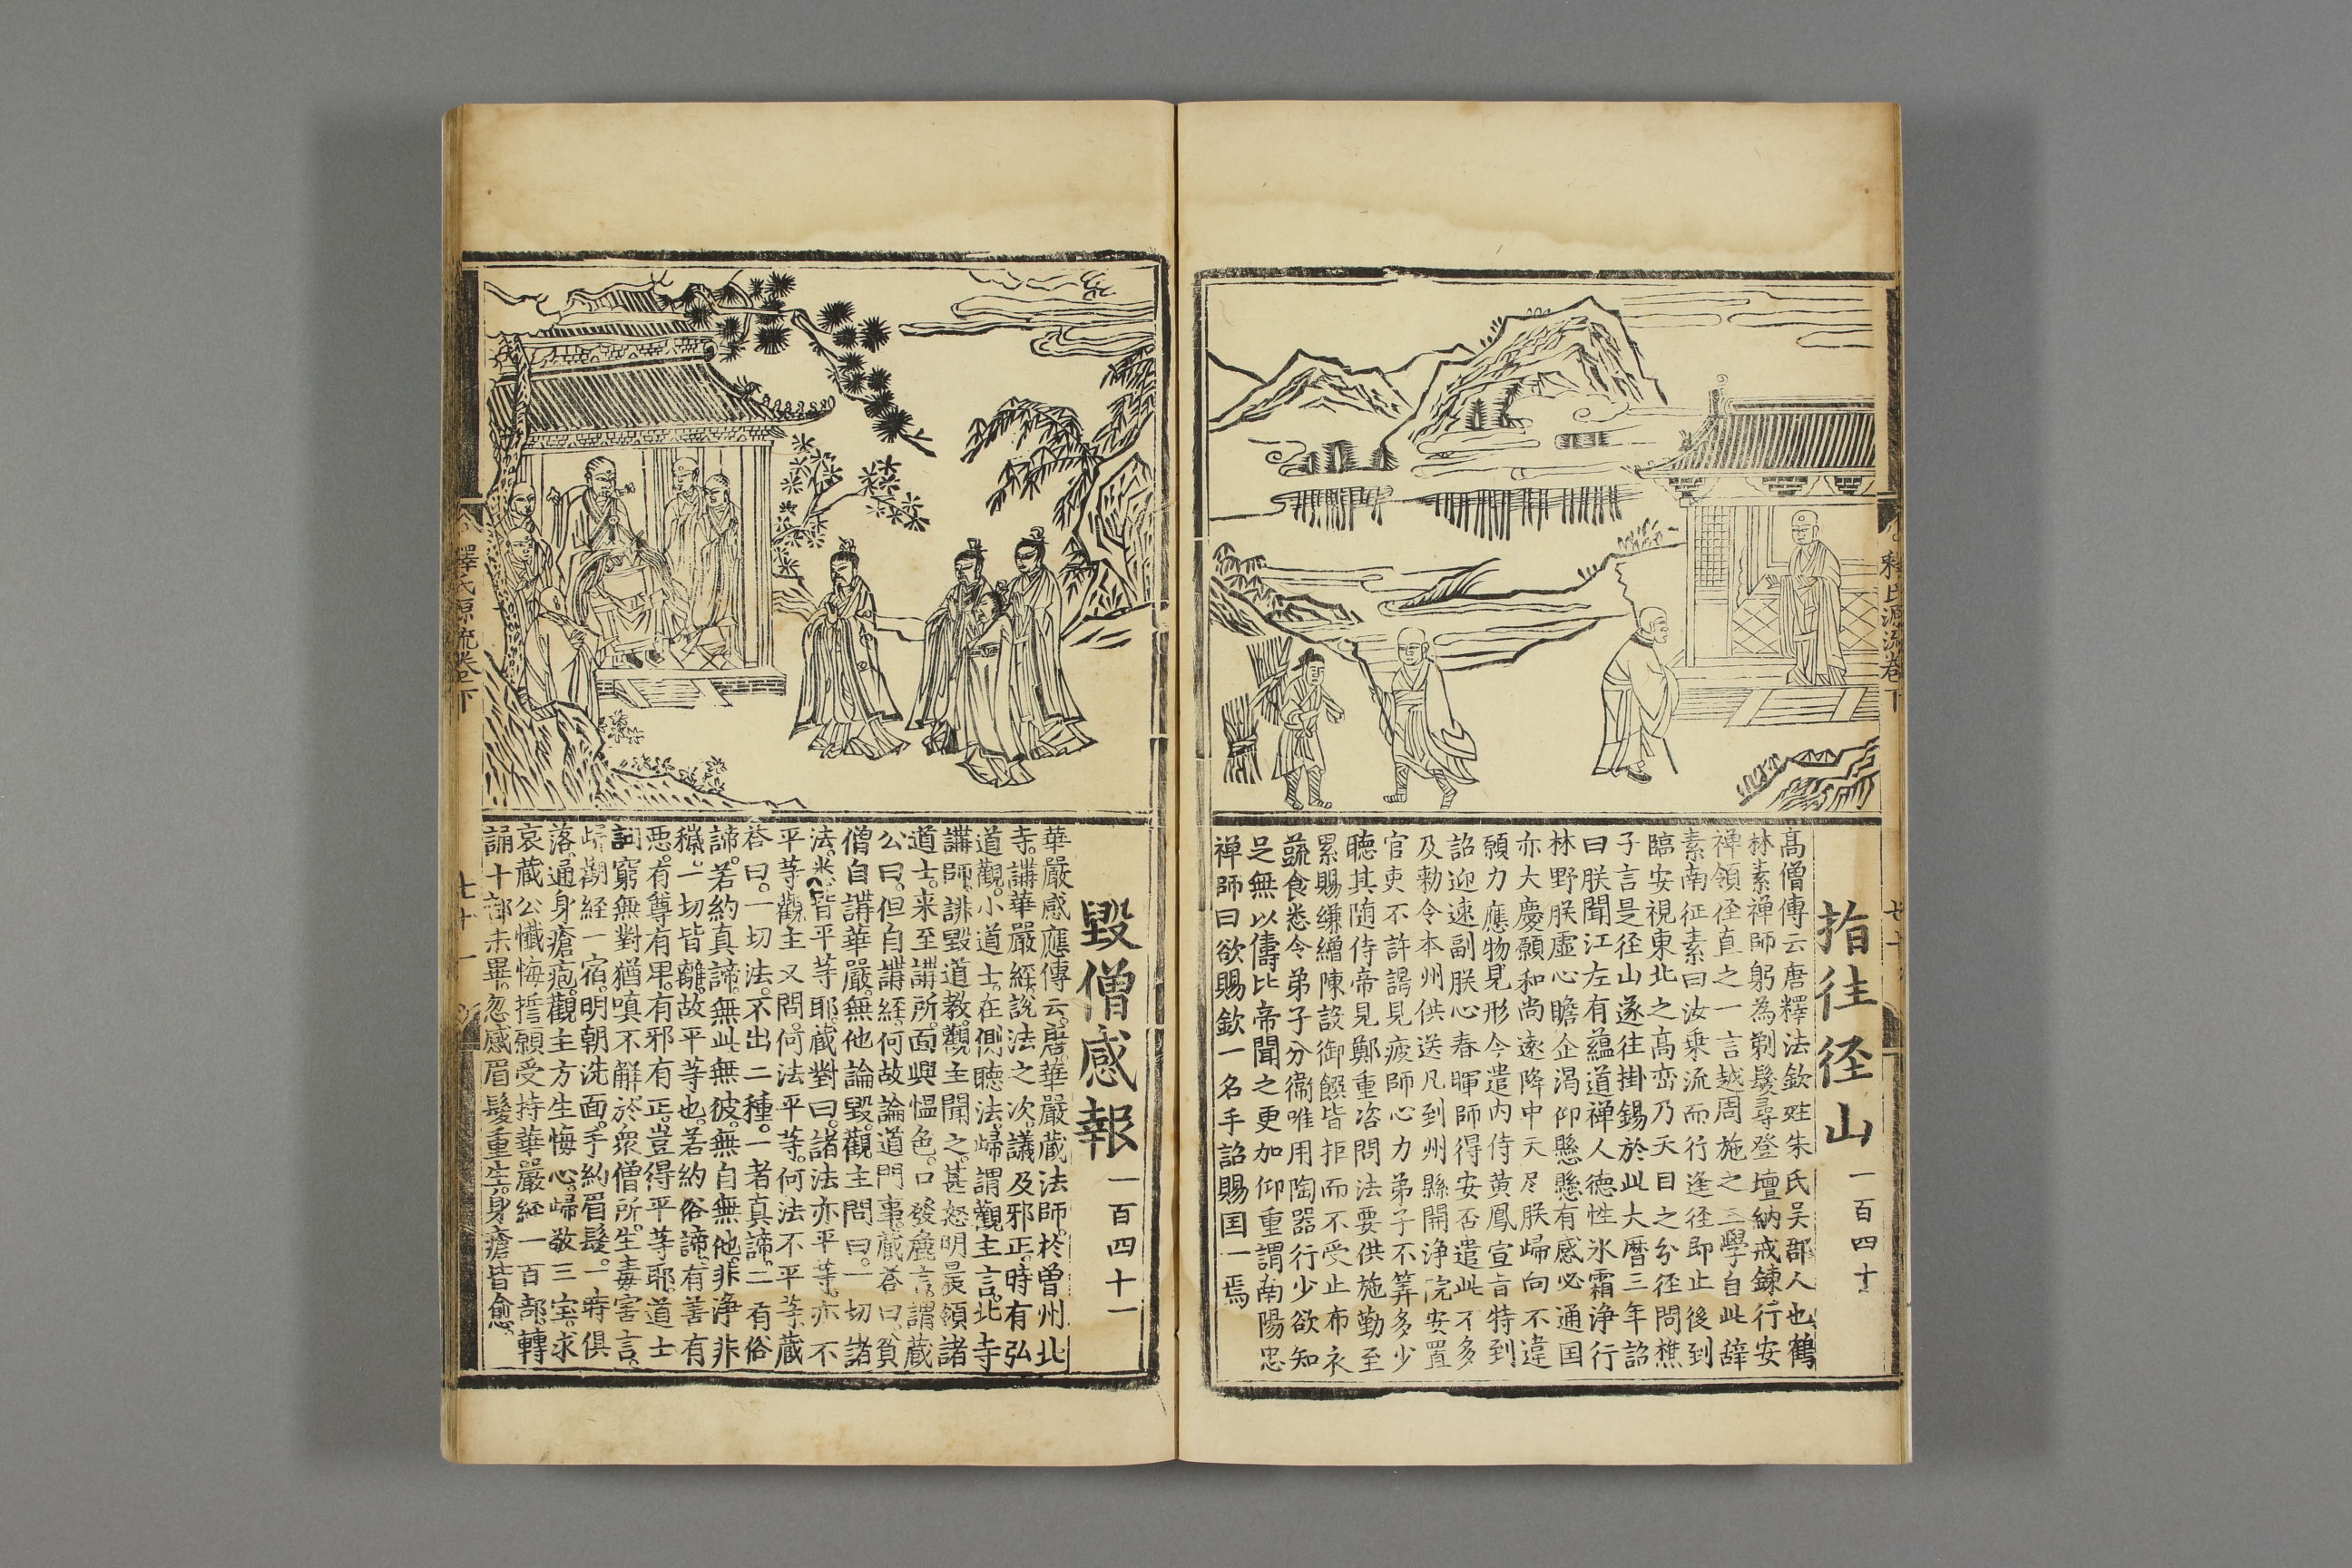 指往径山 一百四十
高僧傳云唐釋法欽姓朱氏吴郡人也鶴
林素禅師躬為剃髮尋登壇納戒鍊行安
禅領径直之一言越周施之三學自此辞
素南征素曰汝乗流而行逢径即止後到
臨安視東北之髙峦乃天目之分径問樵
子言是径山遂往掛錫於此大曆三年詔
曰朕聞江左有蘊道禅人德性氷霜浄行
林野朕虚心瞻企渴仰懸懸有感必通囯
亦大慶願和尚遠降中天尽朕歸向不違
願力應物見形今遣内侍黄鳳宣旨特到
詔迎速副朕心春暉師得安否遣此不多
及勅令本州供送凡到州縣開浄院安置
官吏不許謁見疲師心力弟子不筭多少
聴其随侍帝見鄭重咨問法要供施勤至
累賜縑繒陳設御饌皆拒而不受止布衣
蔬食悉令弟子分衛唯用陶器行少欲知
足無以儔比帝聞之更加仰重謂南陽忠
禅師曰欲賜欽一名手詔賜囯一焉
釋氏源流卷下
毀僧感報 一百四十一
華嚴感應傳云。唐華嚴蔵法師。於曽州北
寺。講華嚴経。說法之次。議及邪正。時有弘
道觀。小道士。在側聴法。歸謂觀主言。北寺
講師。誹毀道教。觀主聞之。甚怒明晨領諸
道士。来至講所。面輿愠色。口發麁言。謂蔵
公曰。但自講経。何故論道門事。蔵荅曰。貧
僧自講華嚴。無他論毀。觀主問曰。一切諸
法。悉皆平等耶。蔵對曰。諸法亦平等。亦不
平等。觀主又問。何法平等。何法不平等。蔵
荅曰。一切法。不出二種。一者真諦。二有俗
諦。若約真諦。無此無彼。無自無他。非浄非
穢。一切皆離。故平等也。若約俗諦。有善有
悪。有尊有卑。有邪有正。豈得平等耶。道士
詞窮無對。猶嗔不解。於衆僧所。生毒害言。
歸觀経一宿。明朝洗面。手約眉髮。一時俱
落。通身瘡疱。觀主方生悔心。歸敬三宝。求
哀蔵公懺悔。誓願受持華嚴経一百部。轉
誦十部未畢。忽感眉髮重生。身瘡皆愈。
釋氏源流卷下
七十一